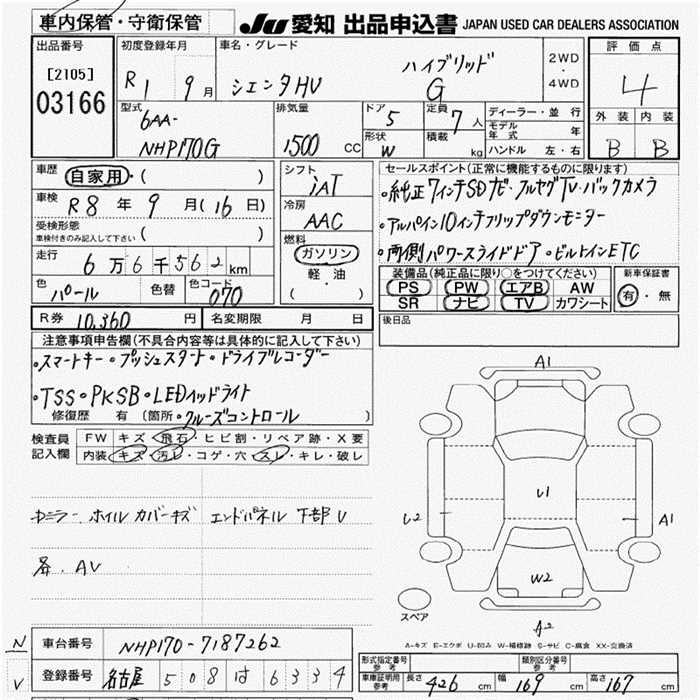 車内保管・守衛保管
JU 愛知 出品申込書 JAPAN USED CAR DEALERS ASSOCIATION
出品番号
[2105]
03166
初度登録年月
R1 9月
車名・グレード
シエンタHV ハイブリッド G
2WD・4WD
評価点
4
外装 内装
B B
型式
6AA-
NHP170G
排気量
1500 CC
ドア 5
形状 W
定員 7人
積載 kg
ディーラー・並行
モデル年式 年
ハンドル 左・右
車歴
自家用・( )
車検
R8年9月(16日)
受検形態
車検付きのみ記入して下さい ( )
走行
6万6千562km
色 パール 色替 色コード 070
シフト
iAT
冷房
AAC
燃料
ガソリン
軽・油
( )
セールスポイント(正常に機能するものに限ります)
・純正7インチSDナビ・フルセグTV・バックカメラ
・アルパイン10インチフリップダウンモニター
・両側パワースライドドア・ビルトインETC
装備品(純正品に限り○をつけてください)
PS PW エアB AW
SR ナビ TV カワシート
新車保証書
有・無
R券 10,360円 名変期限 月 日
後日品
注意事項申告欄(不具合内容等は具体的に記入して下さい)
・スマートキー・プッシュスタート・ドライブレコーダー
・TSS・PKSB・LEDヘッドライト
修復歴 有 (箇所・クルーズコントロール
検査員記入欄
FW キズ・飛石・ヒビ割・リペア跡・X要
内装 キズ・汚レ・コゲ・穴・スレ・キレ・破レ
ホイルカバーキズ エンドパネル下部U
AV
A1
U2
U1
A1
W2
A2
スペア
A-キズ E-エクボ U-凹み W-補修跡 S-サビ C-腐食 XX-交換済
N
V
車台番号 NHP170-7187262
登録番号 名古屋 508 は 6334
形式指定番号 参考
類別区分番号 参考
車庫証明用参考 長さ 426cm 幅 169cm 高さ 167cm